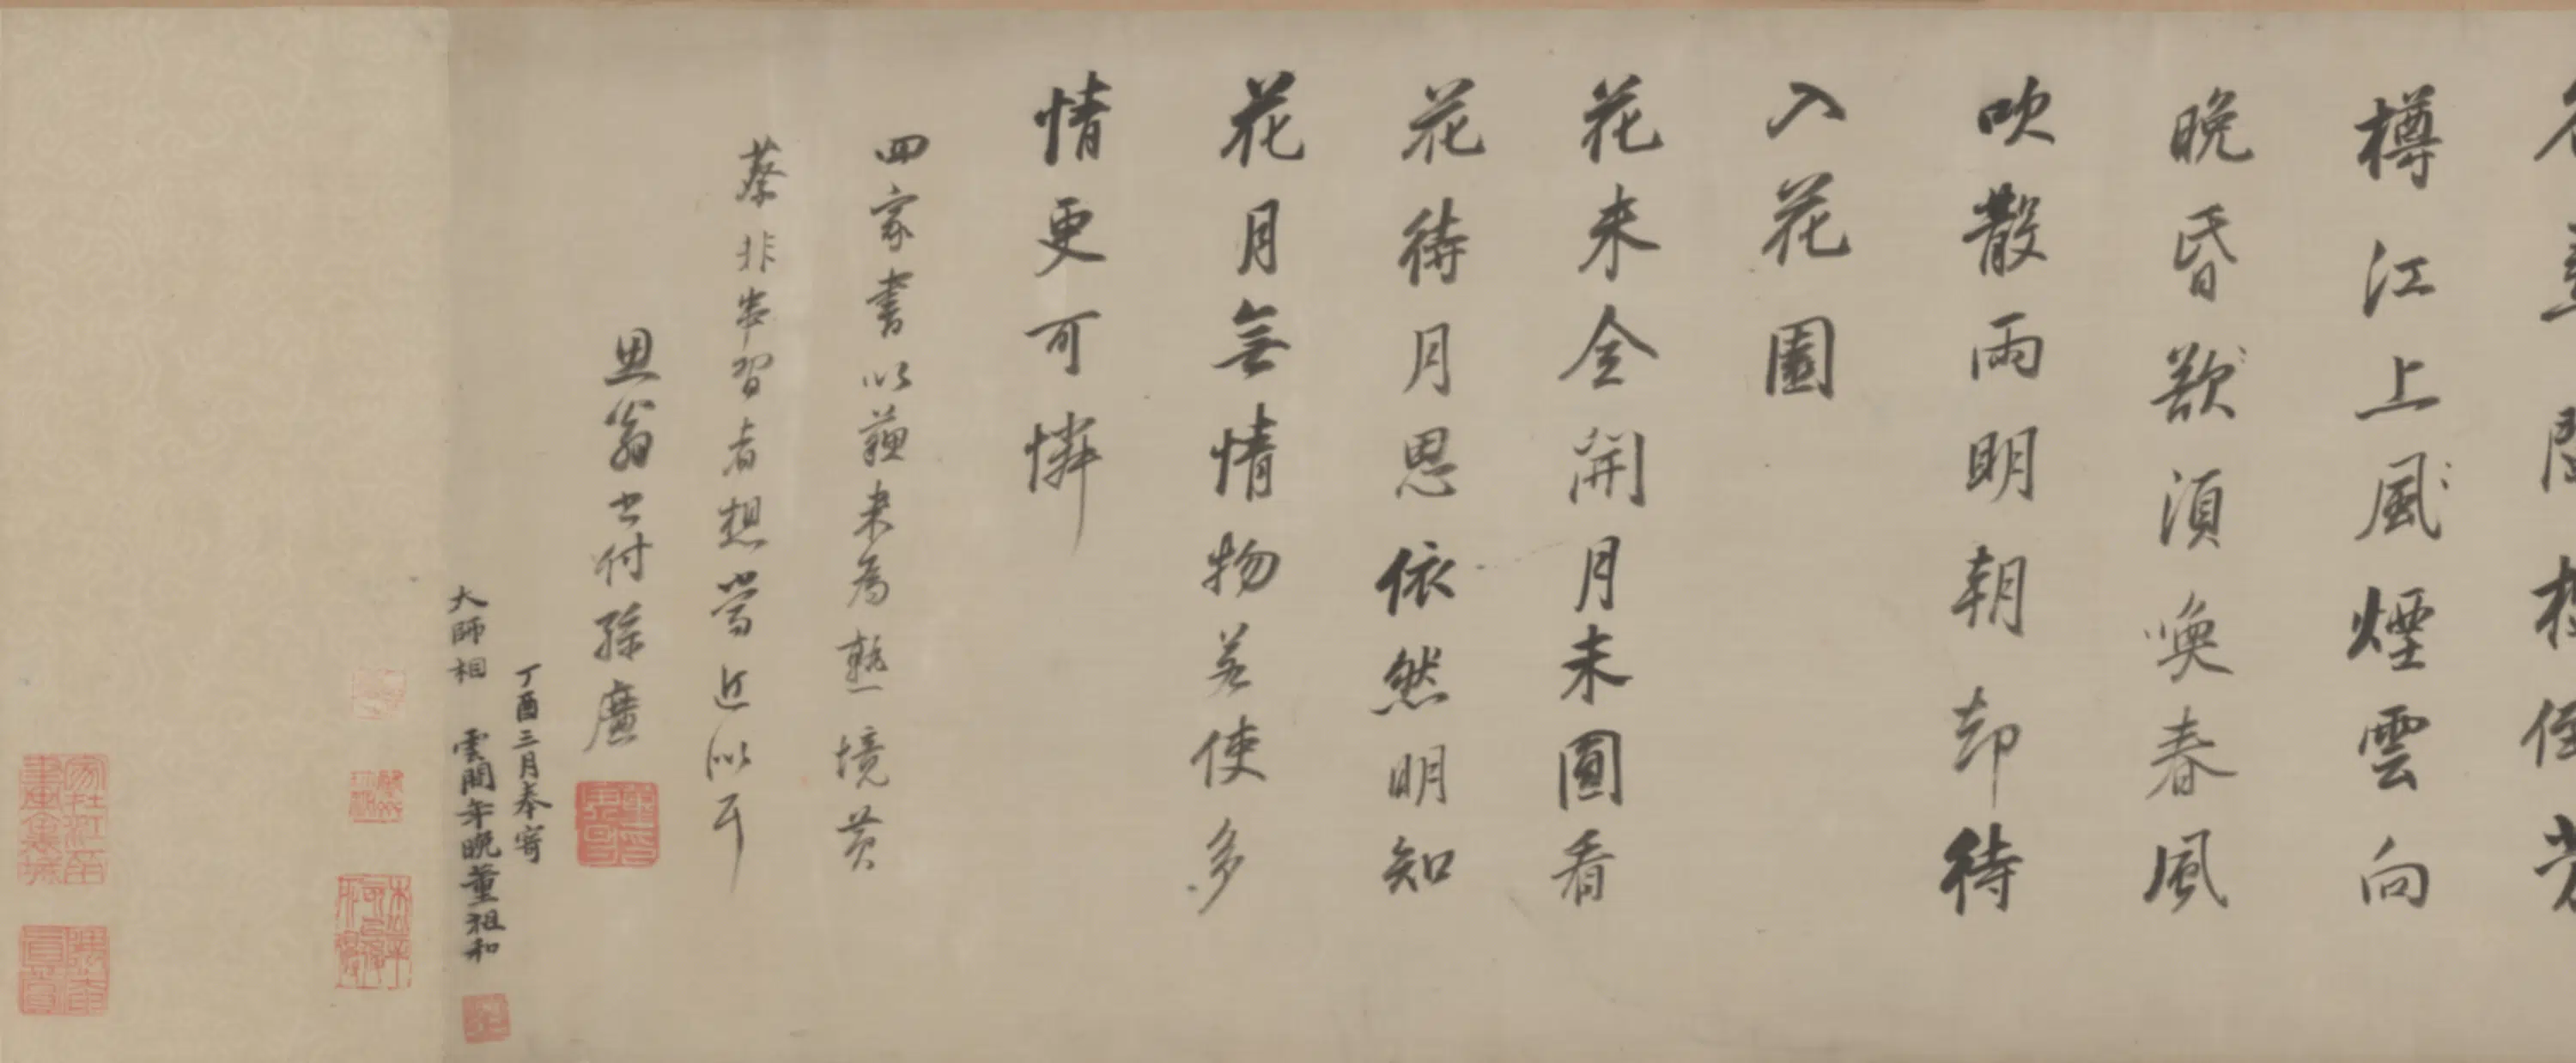 樽江上風煙雲向
晚昏歘須喚春風
吹散雨明朝却待
入花園
花未全開月未圓看
花待月思依然明知
花月無情物若使多
情更可憐
四家書以蘇米為熟境黃
蔡非串習者想當近似耳
思翁書付孫廣
丁酉三月奉寄
大師相 雲間年晚董祖和